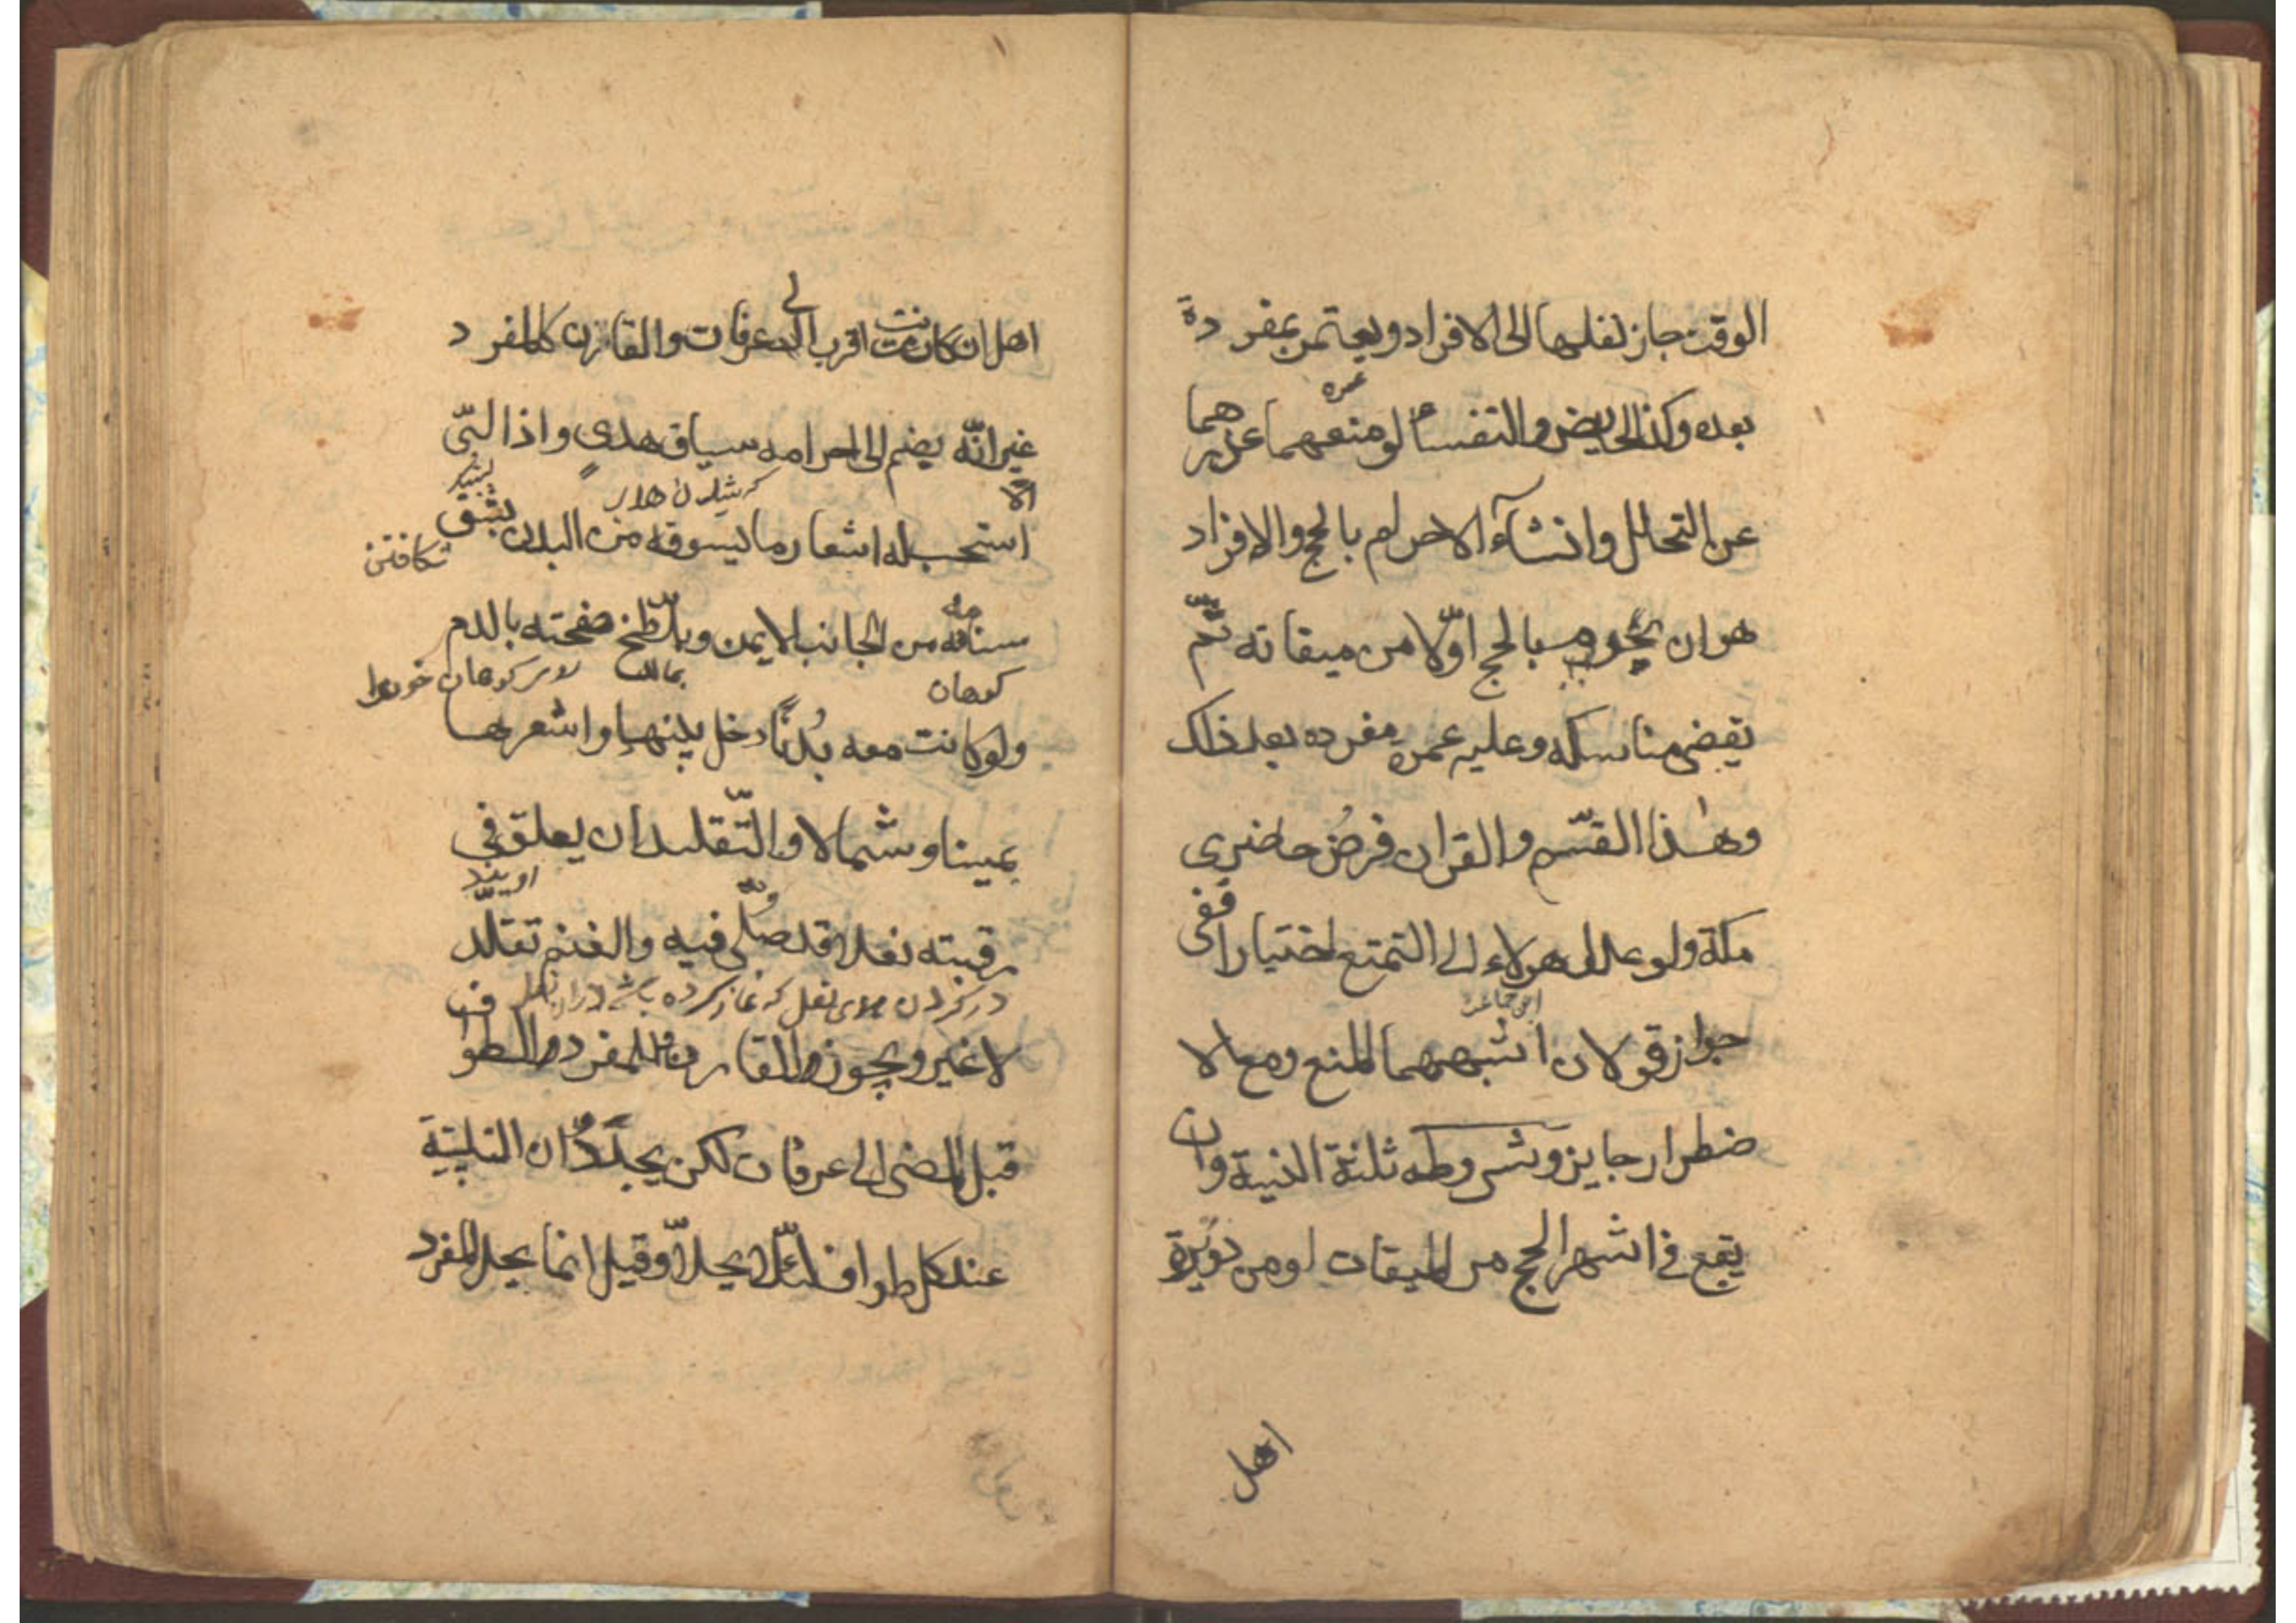 الوقت جاز نقلها الى الافراد ويعتمر بمفردة
بعده وكذا الحايض والنفساء لو منعهما عذرهما
عمره
عن التحلل وانشآء الاحرام بالحج والافراد
هو ان يحرم بالحج اوّلا من ميقاته ثم
يقضى مناسكه وعليه عمرة مفرده بعد ذلك
وهٰذا القسم والقران فرضُ حاضرى
مكة ولو عدل هولاء الى التمتع اختيارا ففى
جواز قولان اشبههما المنع ومع الا
ضطرار جايز وشروطه ثلثة النية وان
يقع فى اشهر الحج من الميقات او من دويرة
اهل
اهل ان كانت اقرب الى عرفات والقارن كالمفرد
غير انّه يضم الى احرامه سياق هدىٍ واذا لبّى
استحب له اشعار ما يسوقه من البدن بشق
شكافتن
سنامه من الجانب الايمن ويلطّخ صفحته بالدم
كوهان
ولو كانت معه بُدنًا دخل بينها واشعرها
يمينا وشمالا والتّقليد ان يعلق فى
رقبته نعلا قد صُلّى فيه والغنم تقلّد
لا غير ويجوز للقارن والمفرد الطواف
قبل المضى الى عرفات لكن يجدّدان التلبية
عند كل طواف لئلّا يحلّا وقيل انما يحل المفرد